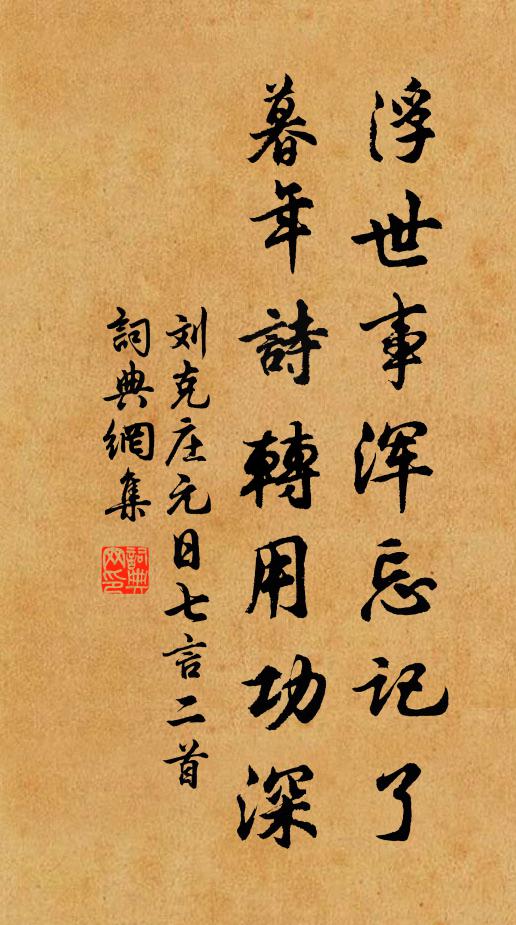 浮世事浑忘记了
暮年詩轉用功深
刘克庄元日七言二首
詞典網集
詞典網印